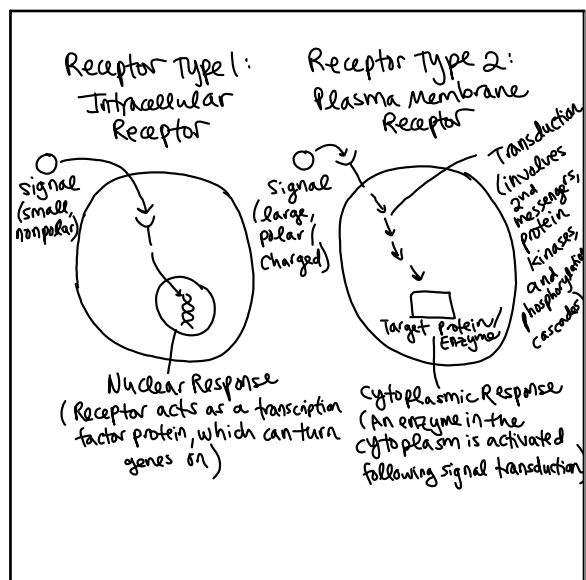 Receptor Type 1:
Intracellular
Receptor
signal
(small,
nonpolar)
Nuclear Response
(Receptor acts as a transcription
factor protein, which can turn
genes on)
Receptor Type 2:
Plasma Membrane
Receptor
signal
(large,
polar/
charged)
Transduction
(involves
2nd
messengers,
protein
kinases,
and
phosphorylation
cascades)
Target protein/
Enzyme
Cytoplasmic Response
(An enzyme in the
cytoplasm is activated
following signal transduction)